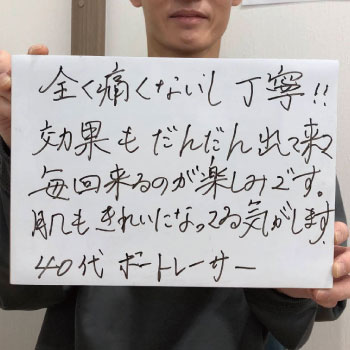 全く痛くないし丁寧!!
効果もだんだん出て来て
毎回来るのが楽しみです。
肌もきれいになってる気がします.
40代 ボートレーサー